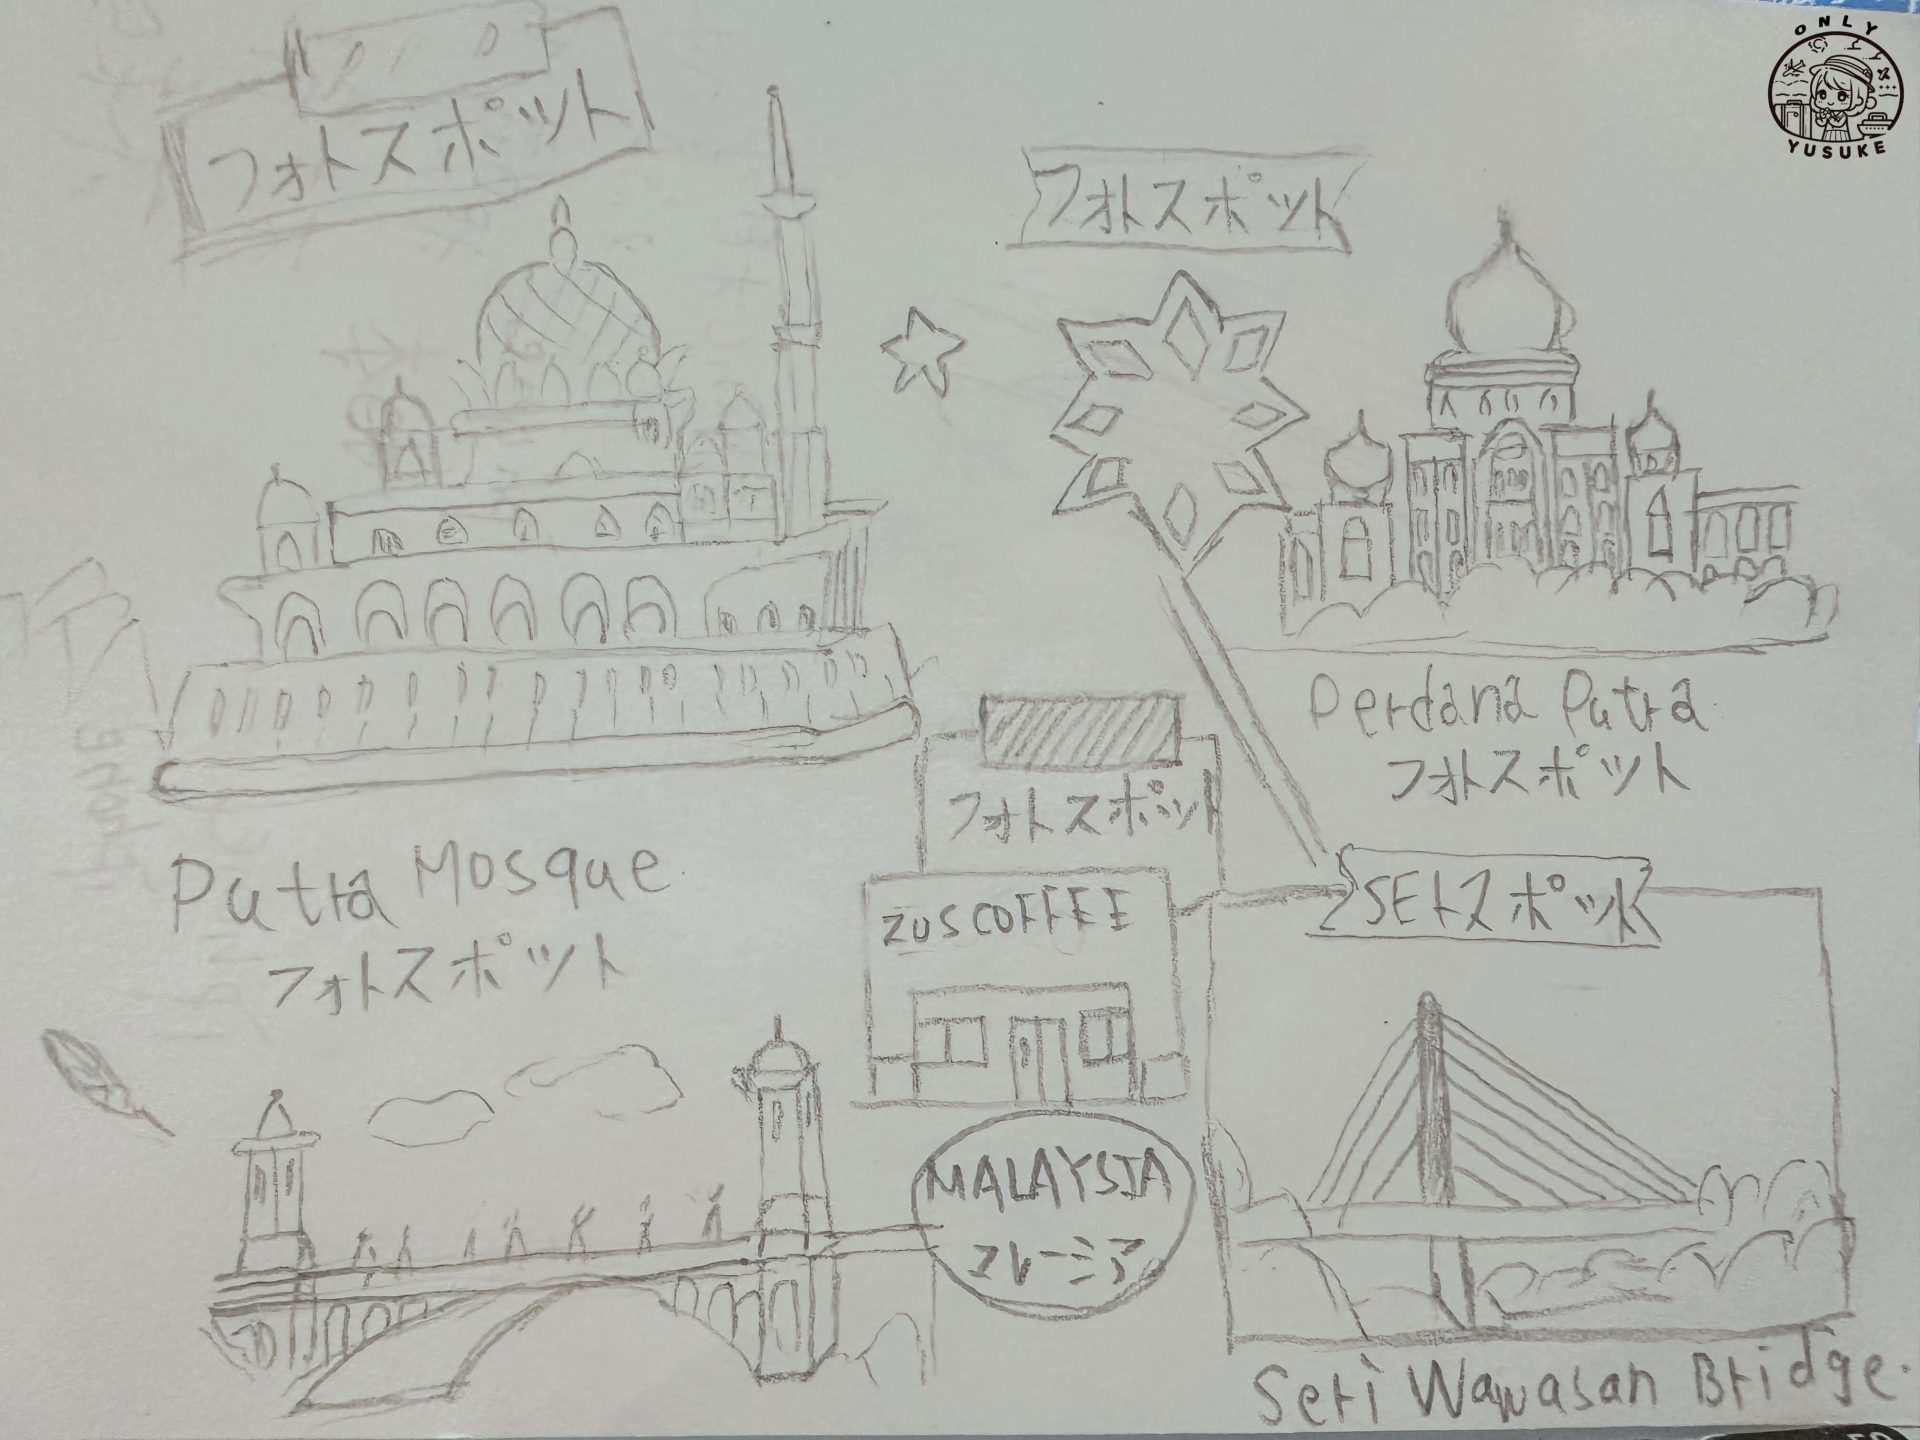 ONLY
YUSUKE
フォトスポット
フォトスポット
Perdana Putra
フォトスポット
フォトスポット
Putra Mosque
フォトスポット
ZUSCOFFEE
SEトスポット
MALAYSIA
マレーシア
Seri Wawasan Bridge.